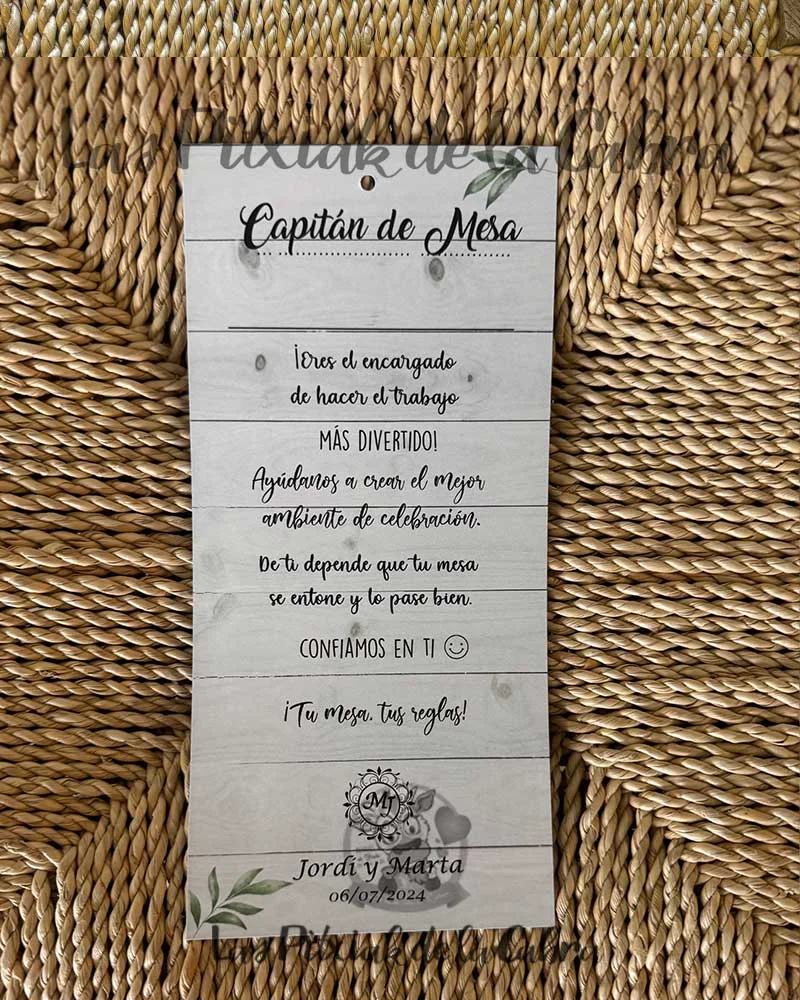 Las Piixiak de la Cabra
Capitán de Mesa
¡Eres el encargado
de hacer el trabajo
MÁS DIVERTIDO!
Ayúdanos a crear el mejor
ambiente de celebración.
De ti depende que tu mesa
se entone y lo pase bien.
CONFIAMOS EN TI
¡Tu mesa, tus reglas!
MJ
Jordi y Marta
06/07/2024
Las Piixiak de la Cabra